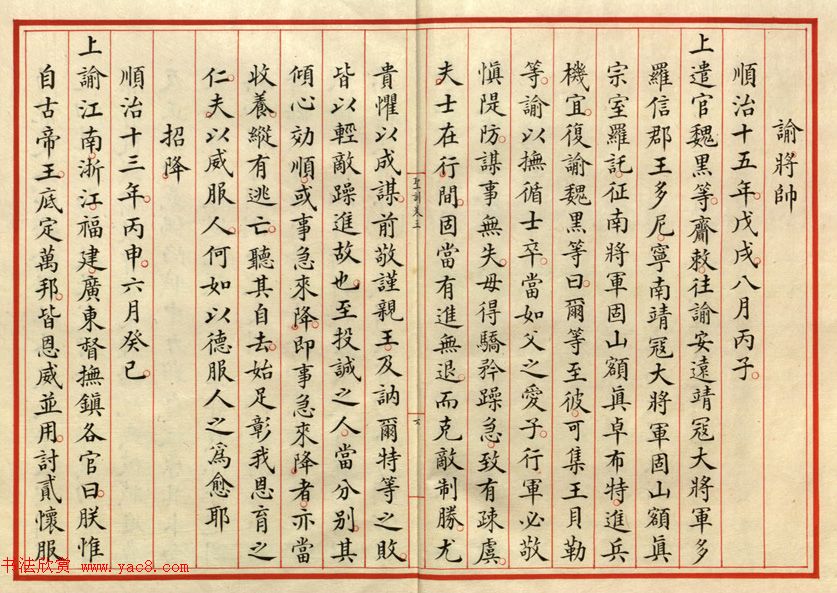 諭將帥
順治十五年戊戌八月丙子
上遣官魏黑等齎敕往諭安遠靖寇大將軍多
羅信郡王多尼寧南靖寇大將軍固山額真
宗室羅託征南將軍固山額真卓布特進兵
機宜復諭魏黑等曰爾等至彼可集王貝勒
等諭以撫循士卒當如父之愛子行軍必敬
慎隄防謀事無失毋得驕矜躁急致有疎虞
夫士在行間固當有進無退而克敵制勝尤
聖訓卷三
六
貴懼以成謀前敬謹親王及訥爾特等之敗
皆以輕敵躁進故也至投誠之人當分別其
傾心効順或事急來降即事急來降者亦當
收養縱有逃亡聽其自去始足彰我恩育之
仁夫以威服人何如以德服人之為愈耶
招降
順治十三年丙申六月癸巳
上諭江南浙江福建廣東督撫鎮各官曰朕惟
自古帝王底定萬邦皆恩威並用討貳懷服
书法欣赏 www.yac8.com